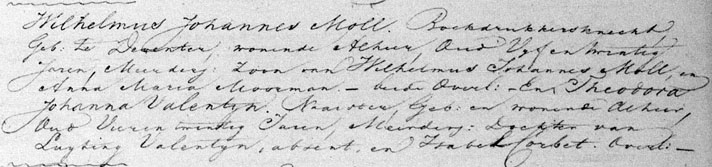 Wilhelmus Johannes Moll. Boekdrukkersknecht,
Geb: te Deventer, wonende Alhier, Oud Vyf en twintig
Jaren, Meerderj: Zoon van Wilhelmus Johannes Moll, en
Anna Maria Moorman. – beide Overl: – En Theodora
Johanna Valentyn. Naaister, Geb: en wonende Alhier,
Oud Vier en twintig Jaren, Meerderj: Dochter van
Valentyn, absent, en Isabella Corbet. Overl: –